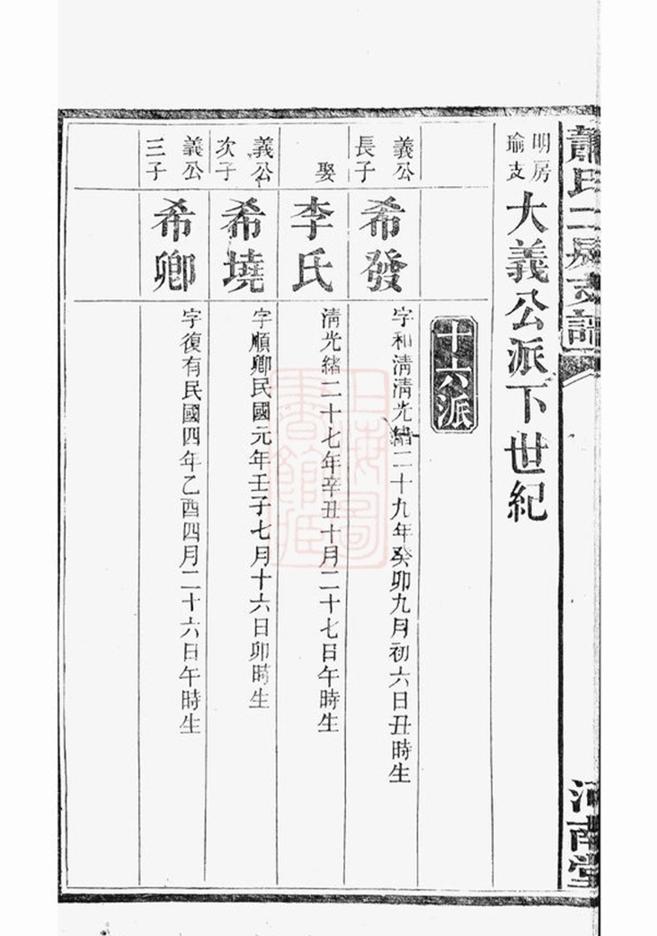 氏二房支譜
河南堂
明房
瑜支
大義公派下世紀
十六派
義公
長子
希發
字和淸淸光緒二十九年癸卯九月初六日丑時生
娶
李氏
淸光緒二十七年辛丑十月二十七日午時生
義公
次子
希墝
字順卿民國元年壬子七月十六日卯時生
義公
三子
希卿
字復有民國四年乙酉四月二十六日午時生
上海圖
書館藏